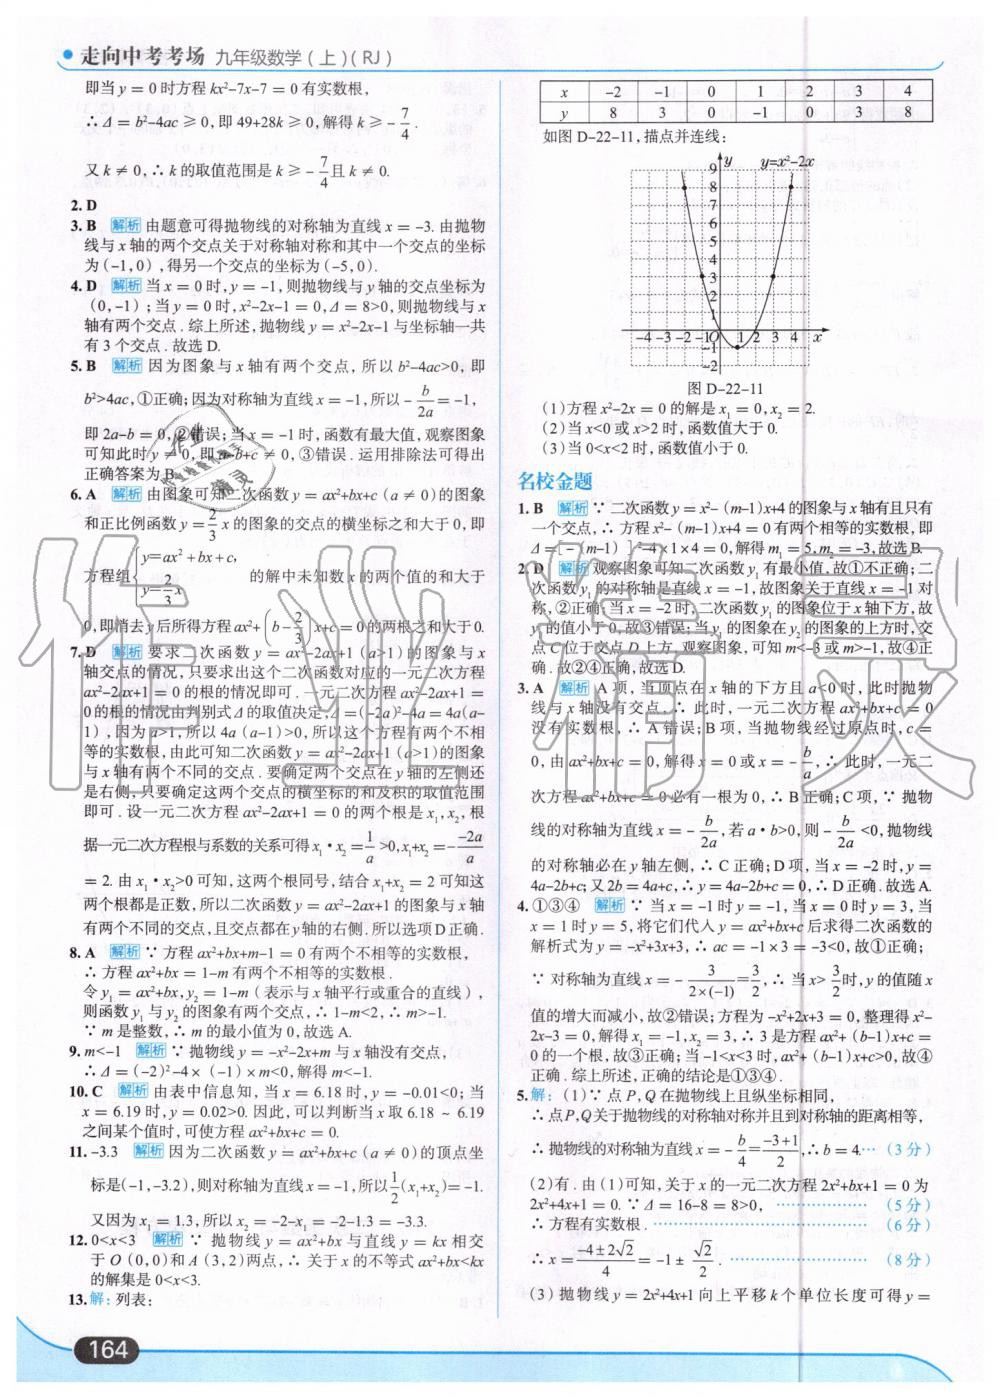 走向中考考场 九年级数学(上)(RJ)
即当 y = 0 时方程 kx²-7x-7 = 0 有实数根,
∴ Δ = b²-4ac ≥ 0, 即 49+28k ≥ 0, 解得 k ≥ -7/4.
又 k ≠ 0, ∴ k 的取值范围是 k ≥ -7/4 且 k ≠ 0.
2. D
3. B 解析 由题意可得抛物线的对称轴为直线 x = -3. 由抛物
线与 x 轴的两个交点关于对称轴对称和其中一个交点的坐标
为(-1,0), 得另一个交点的坐标为(-5,0).
4. D 解析 当 x = 0 时, y = -1, 则抛物线与 y 轴的交点坐标为
(0,-1); 当 y = 0 时, x²-2x-1 = 0, Δ = 8>0, 则抛物线与 x
轴有两个交点. 综上所述, 抛物线 y = x²-2x-1 与坐标轴一共
有 3 个交点. 故选 D.
5. B 解析 因为图象与 x 轴有两个交点, 所以 b²-4ac>0, 即
b²>4ac, ①正确; 因为对称轴为直线 x = -1, 所以 -b/2a = -1,
即 2a-b = 0, ②错误; 当 x = -1 时, 函数有最大值, 观察图象
可知此时 y ≠ 0, 即 a-b+c ≠ 0, ③错误. 运用排除法可得出
正确答案为 B.
6. A 解析 由图象可知二次函数 y = ax²+bx+c (a ≠ 0) 的图象
和正比例函数 y = 2/3 x 的图象的交点的横坐标之和大于 0, 即
方程组 { y=ax²+bx+c, y=2/3 x 的解中未知数 x 的两个值的和大于
0, 即消去 y 后所得方程 ax²+(b-2/3)x+c=0 的两根之和大于 0.
7. D 解析 要求二次函数 y = ax²-2ax+1 (a>1) 的图象与 x
轴交点的情况, 只要求出这个二次函数对应的一元二次方程
ax²-2ax+1 = 0 的根的情况即可. 一元二次方程 ax²-2ax+1 =
0 的根的情况由判别式 Δ 的取值决定, Δ = (-2a)²-4a = 4a(a-
1), 因为 a>1, 所以 4a(a-1)>0, 所以这个方程有两个不相
等的实数根, 由此可知二次函数 y = ax²-2ax+1 (a>1) 的图象
与 x 轴有两个不同的交点. 要确定两个交点在 y 轴的左侧还
是右侧, 只要确定这两个交点的横坐标的和及积的取值范围
即可. 设一元二次方程 ax²-2ax+1 = 0 的两个根是 x₁, x₂, 根
据一元二次方程根与系数的关系可得 x₁·x₂ = 1/a >0, x₁+x₂ = -(-2a)/a
= 2. 由 x₁·x₂>0 可知, 这两个根同号, 结合 x₁+x₂ = 2 可知这
两个根都是正数, 所以二次函数 y = ax²-2ax+1 的图象与 x 轴
有两个不同的交点, 且交点都在 y 轴的右侧. 所以选项 D 正确.
8. A 解析 ∵ 方程 ax²+bx+m-1 = 0 有两个不相等的实数根,
∴ 方程 ax²+bx = 1-m 有两个不相等的实数根.
令 y₁ = ax²+bx, y₂ = 1-m (表示与 x 轴平行或重合的直线),
则函数 y₁ 与 y₂ 的图象有两个交点, ∴ 1-m<2, ∴ m>-1.
∵ m 是整数, ∴ m 的最小值为 0, 故选 A.
9. m<-1 解析 ∵ 抛物线 y = -x²-2x+m 与 x 轴没有交点,
∴ Δ = (-2)²-4×(-1)×m<0, 解得 m<-1.
10. C 解析 由表中信息知, 当 x = 6.18 时, y = -0.01<0; 当
x = 6.19 时, y = 0.02>0. 因此, 可以判断当 x 取 6.18 ~ 6.19
之间某个值时, 可使方程 ax²+bx+c = 0.
11. -3.3 解析 因为二次函数 y = ax²+bx+c (a ≠ 0) 的顶点坐
标是(-1,-3.2), 则对称轴为直线 x = -1, 所以 1/2(x₁+x₂) = -1.
又因为 x₁ = 1.3, 所以 x₂ = -2-x₁ = -2-1.3 = -3.3.
12. 0<x<3 解析 ∵ 抛物线 y = ax²+bx 与直线 y = kx 相交
于 O(0,0) 和 A(3,2) 两点, ∴ 关于 x 的不等式 ax²+bx<kx
的解集是 0<x<3.
13. 解: 列表:
x -2 -1 0 1 2 3 4
y 8 3 0 -1 0 3 8
如图 D-22-11, 描点并连线:
y y=x²-2x
9
8
7
6
5
4
3
2
1
-4 -3 -2 -1 O 1 2 3 4 x
-1
-2
图 D-22-11
(1)方程 x²-2x = 0 的解是 x₁ = 0, x₂ = 2.
(2)当 x<0 或 x>2 时, 函数值大于 0.
(3)当 0<x<2 时, 函数值小于 0.
名校金题
1. B 解析 ∵ 二次函数 y = x²-(m-1)x+4 的图象与 x 轴有且只有
一个交点, ∴ 方程 x²-(m-1)x+4 = 0 有两个相等的实数根, 即
Δ = [-(m-1)]²-4×1×4 = 0, 解得 m₁ = 5, m₂ = -3, 故选 B.
2. D 解析 观察图象可知二次函数 y₁ 有最小值, 故①不正确; 二
次函数 y₁ 的对称轴是直线 x = -1, 故图象关于直线 x = -1 对
称, ②正确; 当 x = -2 时, 二次函数 y₁ 的图象位于 x 轴下方, 故
y₁ 的值小于 0, 故③错误; 当 y₁ 的图象在 y₂ 的图象的上方时, 交
点 C 位于交点 D 上方, 观察图象, 可知 m<-3 或 m>-1, 故④正
确. 故②④正确, 故选 D.
3. A 解析 A 项, 当顶点在 x 轴的下方且 a<0 时, 此时抛物
线与 x 轴没有交点, ∴ 此时, 一元二次方程 ax²+bx+c = 0
没有实数根, ∴ A 错误; B 项, 当抛物线经过原点时, c =
0, 由 ax²+bx+c = 0, 解得 x = 0 或 x = -b/a, ∴ 此时, 一元二
次方程 ax²+bx+c = 0 必有一根为 0, ∴ B 正确; C 项, ∵ 抛物
线的对称轴为直线 x = -b/2a, 若 a·b>0, 则 -b/2a <0, 抛物线
的对称轴必在 y 轴左侧, ∴ C 正确; D 项, 当 x = -2 时, y =
4a-2b+c; 又 2b = 4a+c, ∴ y = 4a-2b+c = 0, ∴ D 正确. 故选 A.
4. ①③④ 解析 ∵ 当 x = -1 时 y = -1, 当 x = 0 时 y = 3, 当
x = 1 时 y = 5, 将它们代入 y = ax²+bx+c 后求得二次函数的
解析式为 y = -x²+3x+3, ∴ ac = -1×3 = -3<0, 故①正确;
∵ 对称轴为直线 x = -3/(2×(-1)) = 3/2, ∴ 当 x> 3/2 时, y 的值随 x
值的增大而减小, 故②错误; 方程为 -x²+2x+3 = 0, 整理得 x²-
2x-3 = 0, 解得 x₁ = -1, x₂ = 3, ∴ 3 是方程 ax²+(b-1)x+c =
0 的一个根, 故③正确; 当 -1<x<3 时, ax²+(b-1)x+c>0, 故④
正确. 综上所述, 正确的结论是①③④.
5. 解: (1)∵ 点 P, Q 在抛物线上且纵坐标相同,
∴ 点 P, Q 关于抛物线的对称轴对称并且到对称轴的距离相等,
∴ 抛物线的对称轴为直线 x = -b/4 = (-3+1)/2, ∴ b = 4. … (3 分)
(2)有. 由(1)可知, 关于 x 的一元二次方程 2x²+bx+1 = 0 为
2x²+4x+1 = 0. ∵ Δ = 16-8 = 8>0, ……… (5 分)
∴ 方程有实数根. ……… (6 分)
∴ x = (-4±2√2)/4 = -1±√2/2. ……… (8 分)
(3)抛物线 y = 2x²+4x+1 向上平移 k 个单位长度可得 y =
164
作业精灵